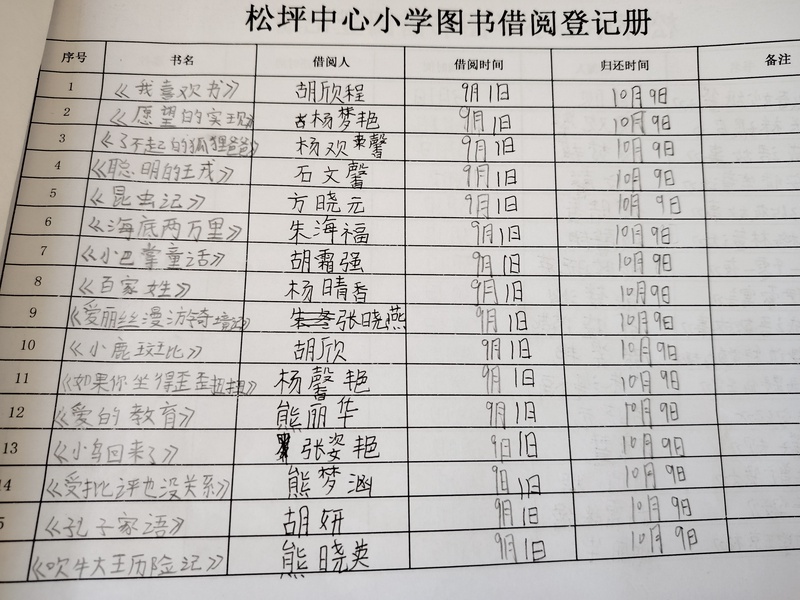 松坪中心小学图书借阅登记册
序号 书名 借阅人 借阅时间 归还时间 备注
1 《我喜欢书》 胡欣程 9月1日 10月9日
2 《愿望的实现》 杨梦艳 9月1日 10月9日
3 《了不起的狐狸爸爸》 杨欢馨 9月1日 10月9日
4 《聪明的王戎》 石文馨 9月1日 10月9日
5 《昆虫记》 方晓元 9月1日 10月9日
6 《海底两万里》 朱海福 9月1日 10月9日
7 《小巴掌童话》 胡霜强 9月1日 10月9日
8 《百家姓》 杨晴香 9月1日 10月9日
9 《爱丽丝漫游奇境记》 张晓燕 9月1日 10月9日
10 《小鹿斑比》 胡欣 9月1日 10月9日
11 《如果你坐得歪歪扭扭》 杨馨艳 9月1日 10月9日
12 《爱的教育》 熊丽华 9月1日 10月9日
13 《小鸟回来了》 张姿艳 9日1日 10月9日
14 《受批评也没关系》 熊梦涵 9日1日 10月9日
5 《孔子家语》 胡妍 9月1日 10月9日
《吹牛大王历险记》 熊晓英 9月1日 10月9日